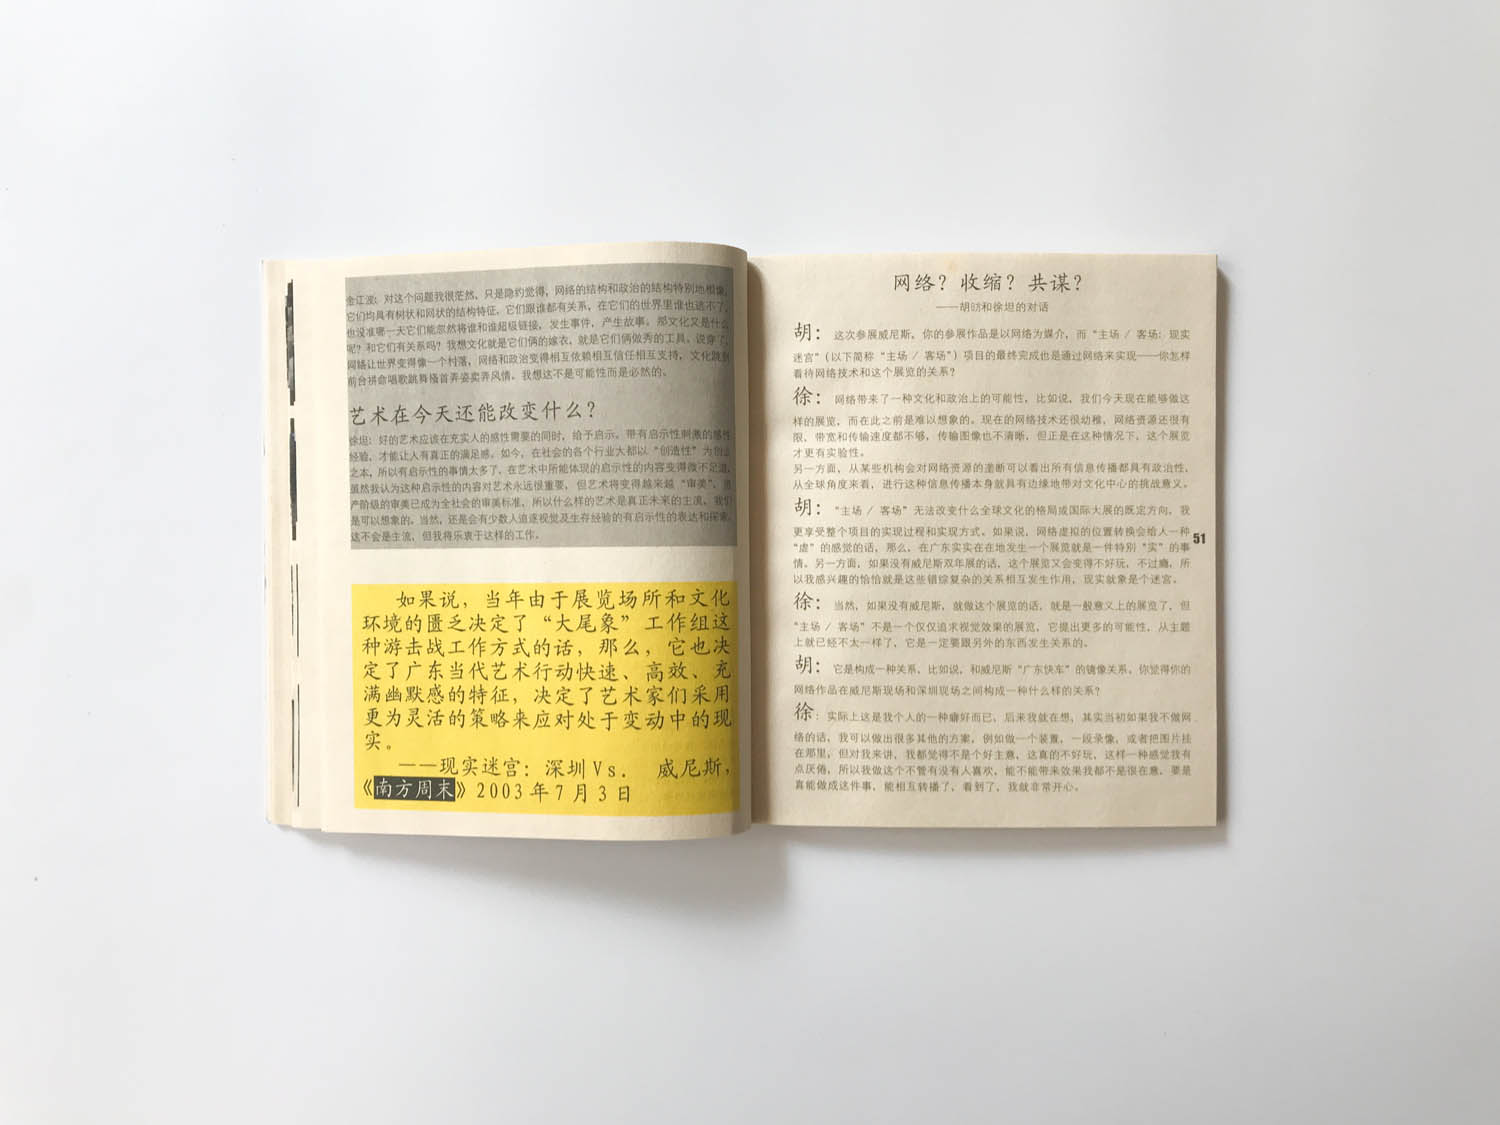 金江波：对这个问题我很茫然，只是隐约觉得，网络的结构和政治的结构特别地相像，
它们均具有树状和网状的结构特征，它们跟谁都有关系，在它们的世界里谁也逃不了，
也没准哪一天它们能忽然将谁和谁超级链接，发生事件，产生故事；那文化又是什么
呢？和它们有关系吗？我想文化就是它们俩的嫁衣，就是它们俩做秀的工具，说穿了，
网络让世界变得像一个村落，网络和政治变得相互依赖相互信任相互支持，文化跳到
前台拼命唱歌跳舞搔首弄姿卖弄风情。我想这不是可能性而是必然的。
艺术在今天还能改变什么？
徐坦：好的艺术应该在充实人的感性需要的同时，给予启示。带有启示性刺激的感性
经验，才能让人有真正的满足感。如今，在社会的各个行业大都以“创造性”为创业
之本，所以有启示性的事情太多了，在艺术中所能体现的启示性的内容变得微不足道，
虽然我认为这种启示性的内容对艺术永远很重要，但艺术将变得越来越“审美”，
产阶级的审美已成为全社会的审美标准，所以什么样的艺术是真正未来的主流，我们
是可以想象的。当然，还是会有少数人追逐视觉及生存经验的有启示性的表达和探索，
这不会是主流，但我将乐衷于这样的工作。
如果说，当年由于展览场所和文化
环境的匮乏决定了“大尾象”工作组这
种游击战工作方式的话，那么，它也决
定了广东当代艺术行动快速、高效、充
满幽默感的特征，决定了艺术家们采用
更为灵活的策略来应对处于变动中的现
实。
——现实迷宫：深圳Vs. 威尼斯，
《南方周末》2003年7月3日
网络？收缩？共谋？
——胡昉和徐坦的对话
胡：这次参展威尼斯，你的参展作品是以网络为媒介，而“主场 / 客场：现实
迷宫”（以下简称“主场 / 客场”）项目的最终完成也是通过网络来实现——你怎样
看待网络技术和这个展览的关系？
徐：网络带来了一种文化和政治上的可能性，比如说，我们今天现在能够做这
样的展览，而在此之前是难以想象的。现在的网络技术还很幼稚，网络资源还很有
限，带宽和传输速度都不够，传输图像也不清晰，但正是在这种情况下，这个展览
才更有实验性。
另一方面，从某些机构会对网络资源的垄断可以看出所有信息传播都具有政治性，
从全球角度来看，进行这种信息传播本身就具有边缘地带对文化中心的挑战意义。
胡：“主场 / 客场”无法改变什么全球文化的格局或国际大展的既定方向，我
更享受整个项目的实现过程和实现方式。如果说，网络虚拟的位置转换会给人一种
“虚”的感觉的话，那么，在广东实实在在地发生一个展览就是一件特别“实”的事
情。另一方面，如果没有威尼斯双年展的话，这个展览又会变得不好玩，不过瘾，所
以我感兴趣的恰恰就是这些错综复杂的关系相互发生作用，现实就象是个迷宫。
徐：当然，如果没有威尼斯，就做这个展览的话，就是一般意义上的展览了，但
“主场 / 客场”不是一个仅仅追求视觉效果的展览，它提出更多的可能性，从主题
上就已经不太一样了，它是一定要跟另外的东西发生关系的。
胡：它是构成一种关系，比如说，和威尼斯“广东快车”的镜像关系，你觉得你的
网络作品在威尼斯现场和深圳现场之间构成一种什么样的关系？
徐：实际上这是我个人的一种癖好而已，后来我就在想，其实当初如果我不做网
络的话，我可以做出很多其他的方案，例如做一个装置，一段录像，或者把图片挂
在那里，但对我来讲，我都觉得不是个好主意，这真的不好玩，这样一种感觉我有
点厌倦，所以我做这个不管有没有人喜欢，能不能带来效果我都不是很在意，要是
真能做成这件事，能相互转播了，看到了，我就非常开心。
51